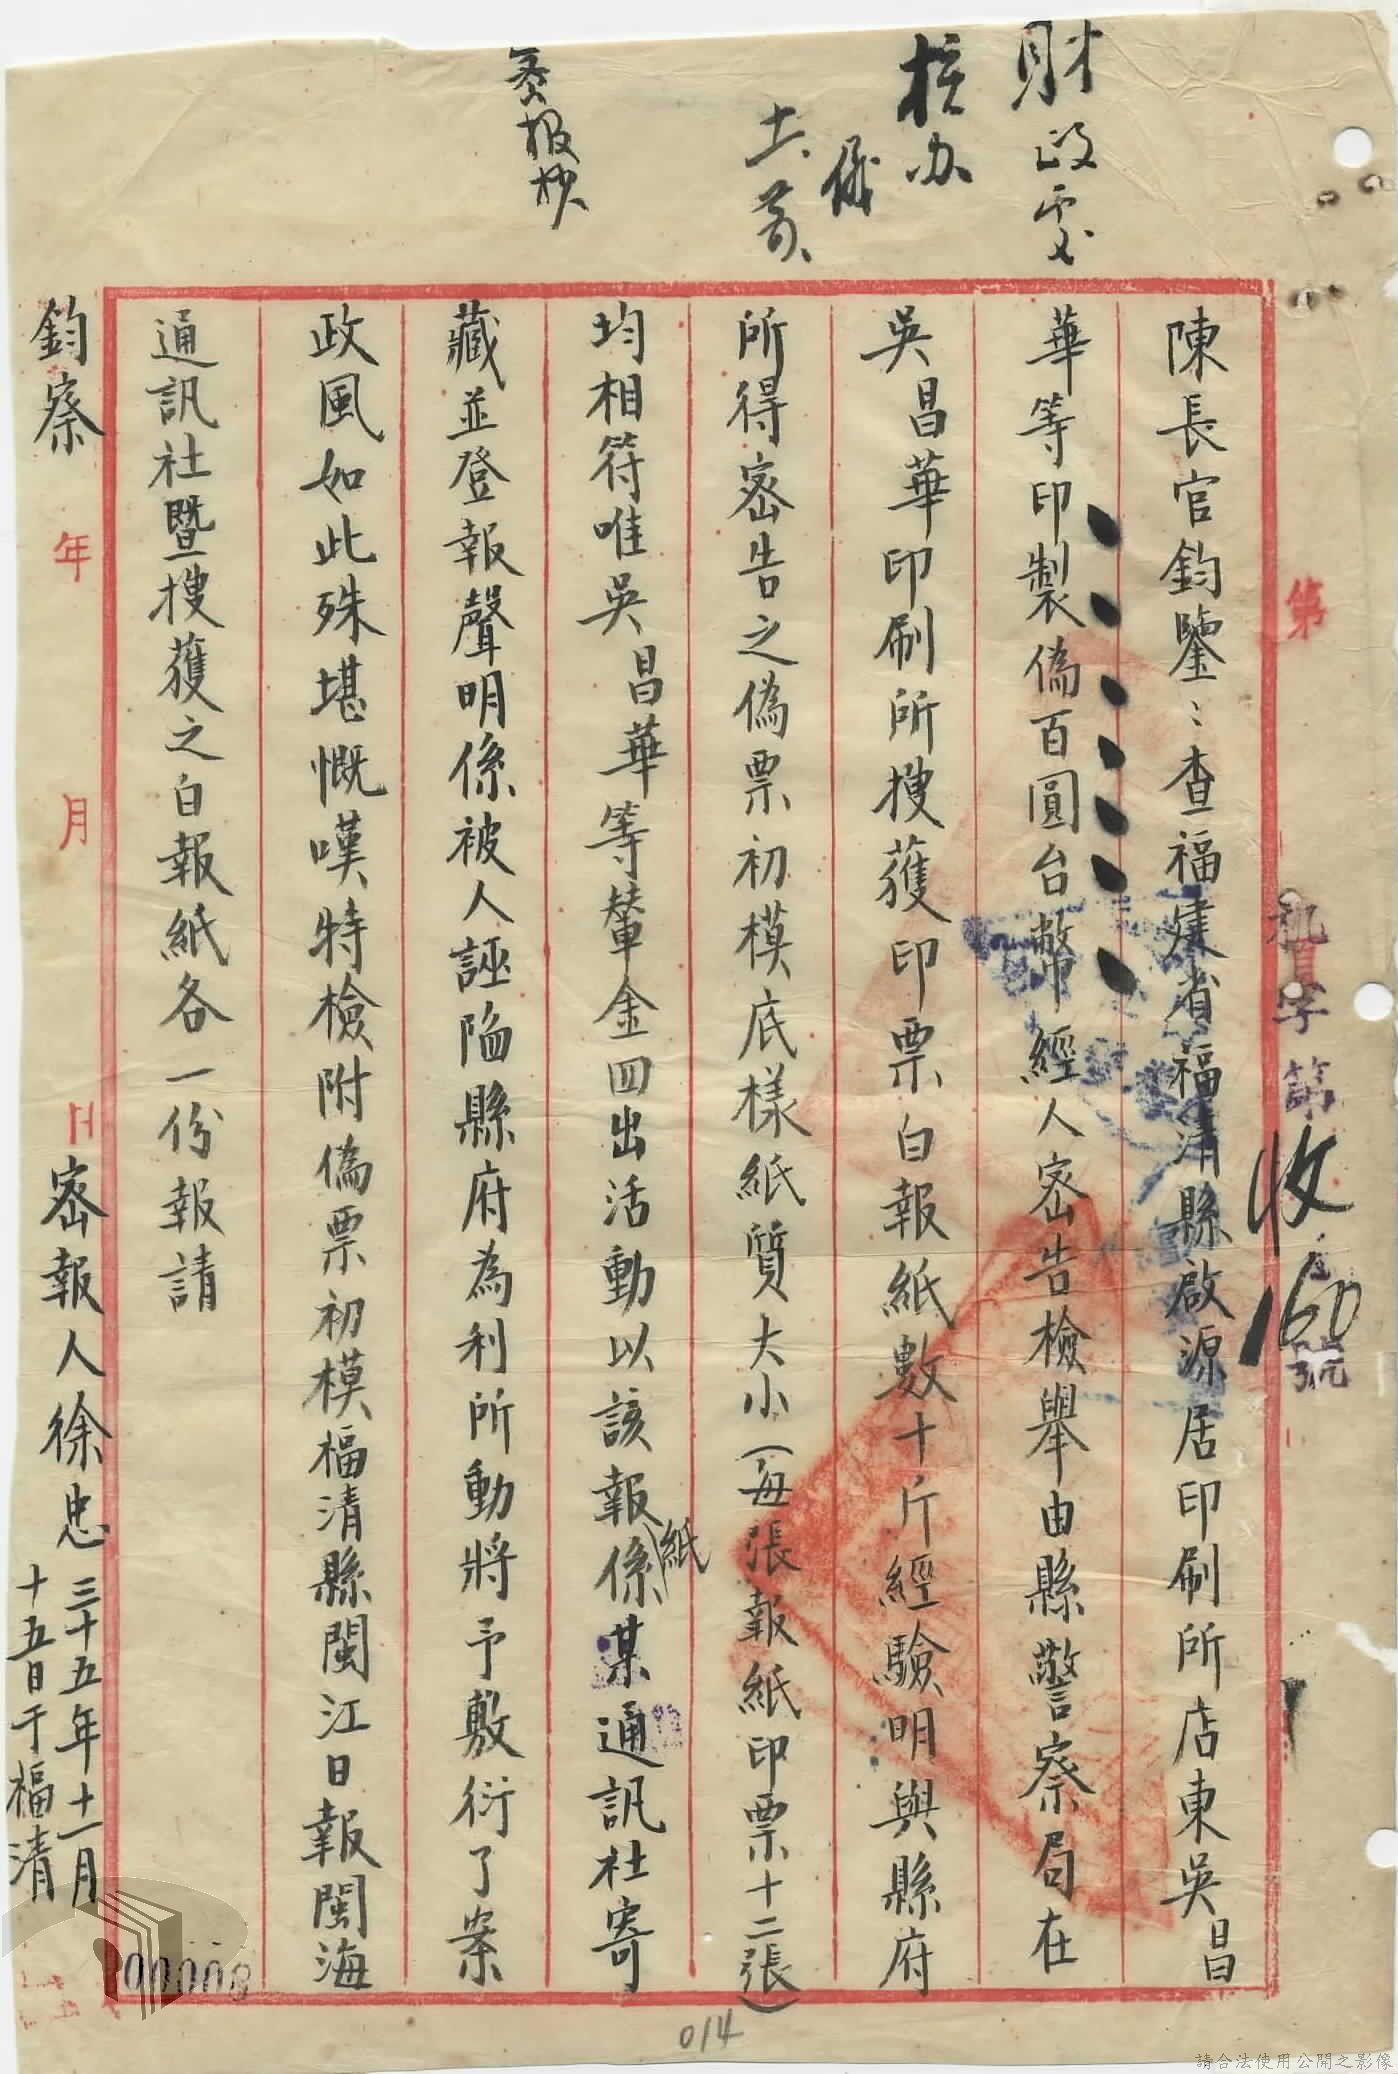 財政處
核办
士、首、
陳長官鈞鑒：查福建省福清縣啟源居印刷所店東吳昌
華等印製偽百圓台幣經人密告檢舉由縣警察局在
吳昌華印刷所搜獲印票白報紙數十斤經驗明與縣府
所得密告之偽票初模底樣紙質大小（每張報紙印票十二張）
均相符唯吳昌華等輦金四出活動以該報紙係某通訊社寄
藏並登報聲明係被人誣陷縣府為利所動將予敷衍了案
政風如此殊堪慨嘆特檢附偽票初模福清縣閩江日報閩海
通訊社暨搜獲之白報紙各一份報請
鈞察
年 月 日
密報人徐忠
三十五年十一月
十五日于福清
第
機字第
收
160
號
00008
014
請合法使用公開之影像